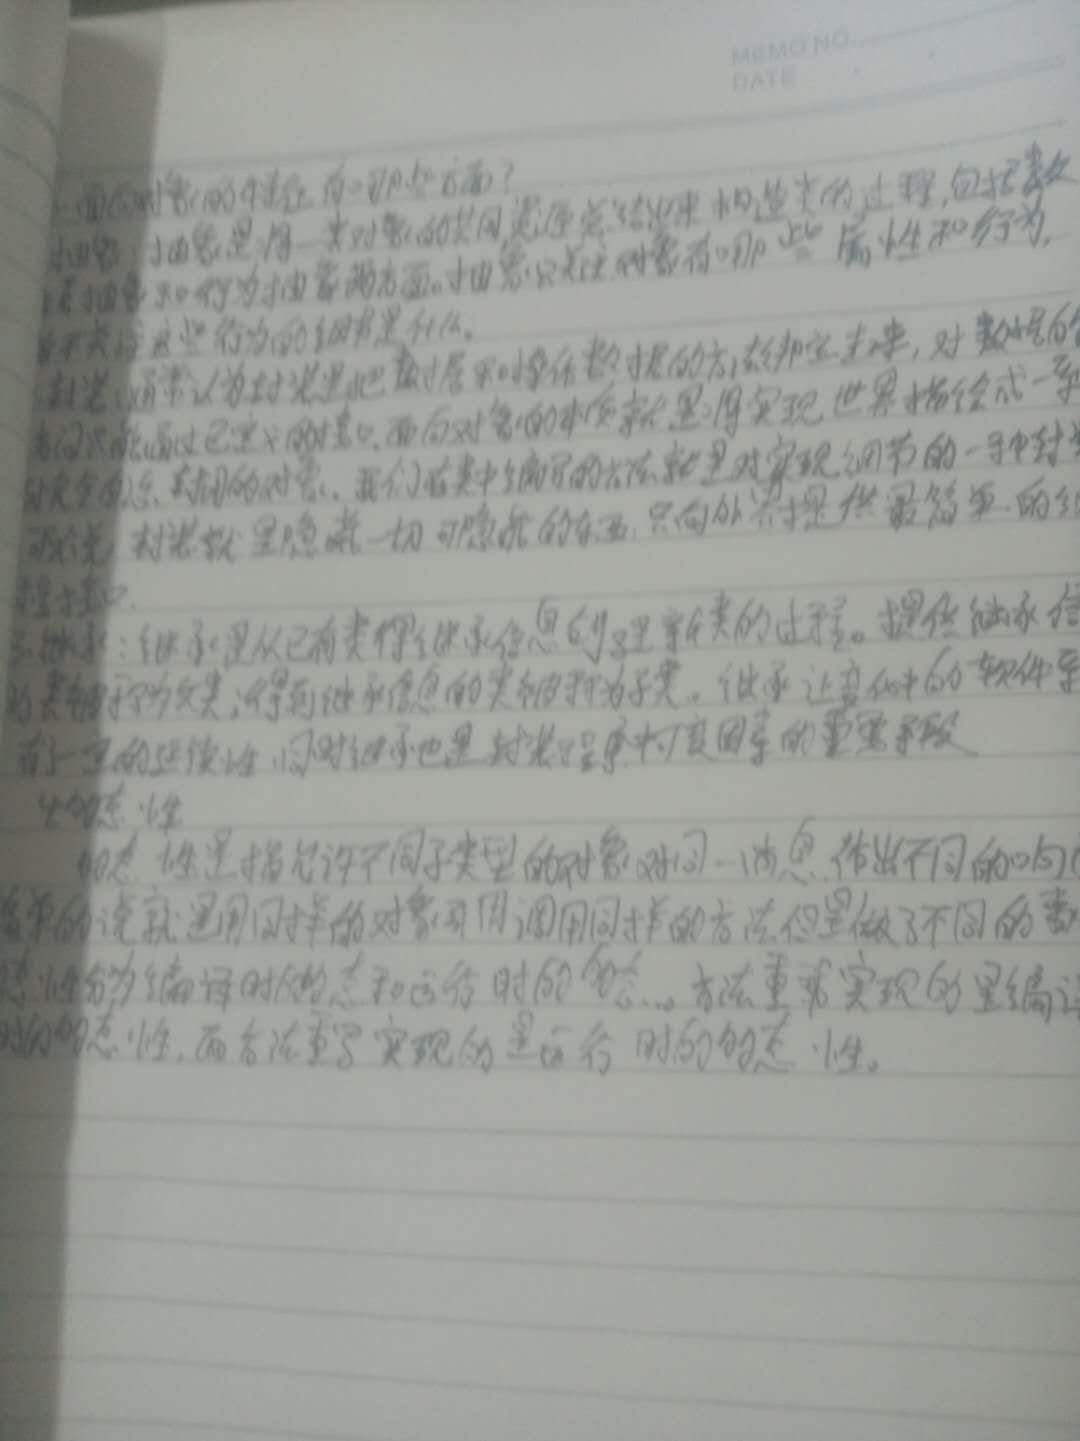 MEMO NO.
DATE
面向对象的特征有哪些方面?
抽象:抽象是将一类对象的共同特征总结出来构造类的过程,包括数
据抽象和行为抽象两方面。抽象只关注对象有哪些属性和行为,
并不关注这些行为的细节是什么。
封装:通常认为封装是把数据和操作数据的方法绑定起来,对数据的
访问只能通过已定义的接口。面向对象的本质就是将实现世界描绘成一系
完全自治、封闭的对象。我们在类中编写的方法就是对实现细节的一种封装
可以说,封装就是隐藏一切可隐藏的东西,只向外界提供最简单的
程接口.
继承:继承是从已有类得继承信息创建新类的过程。提供继承信
的类被称为父类;得到继承信息的类被称为子类。继承让变化中的软件系
有一定的延续性,同时继承也是封装程序中可变因素的重要手段
4多态性
多态性是指允许不同子类型的对象对同一消息作出不同的响
简单的说就是用同样的对象引用调用同样的方法但是做了不同的
态性分为编译时的多态和运行时的多态。方法重载实现的是编译
时的多态性,而方法重写实现的是运行时的多态性。